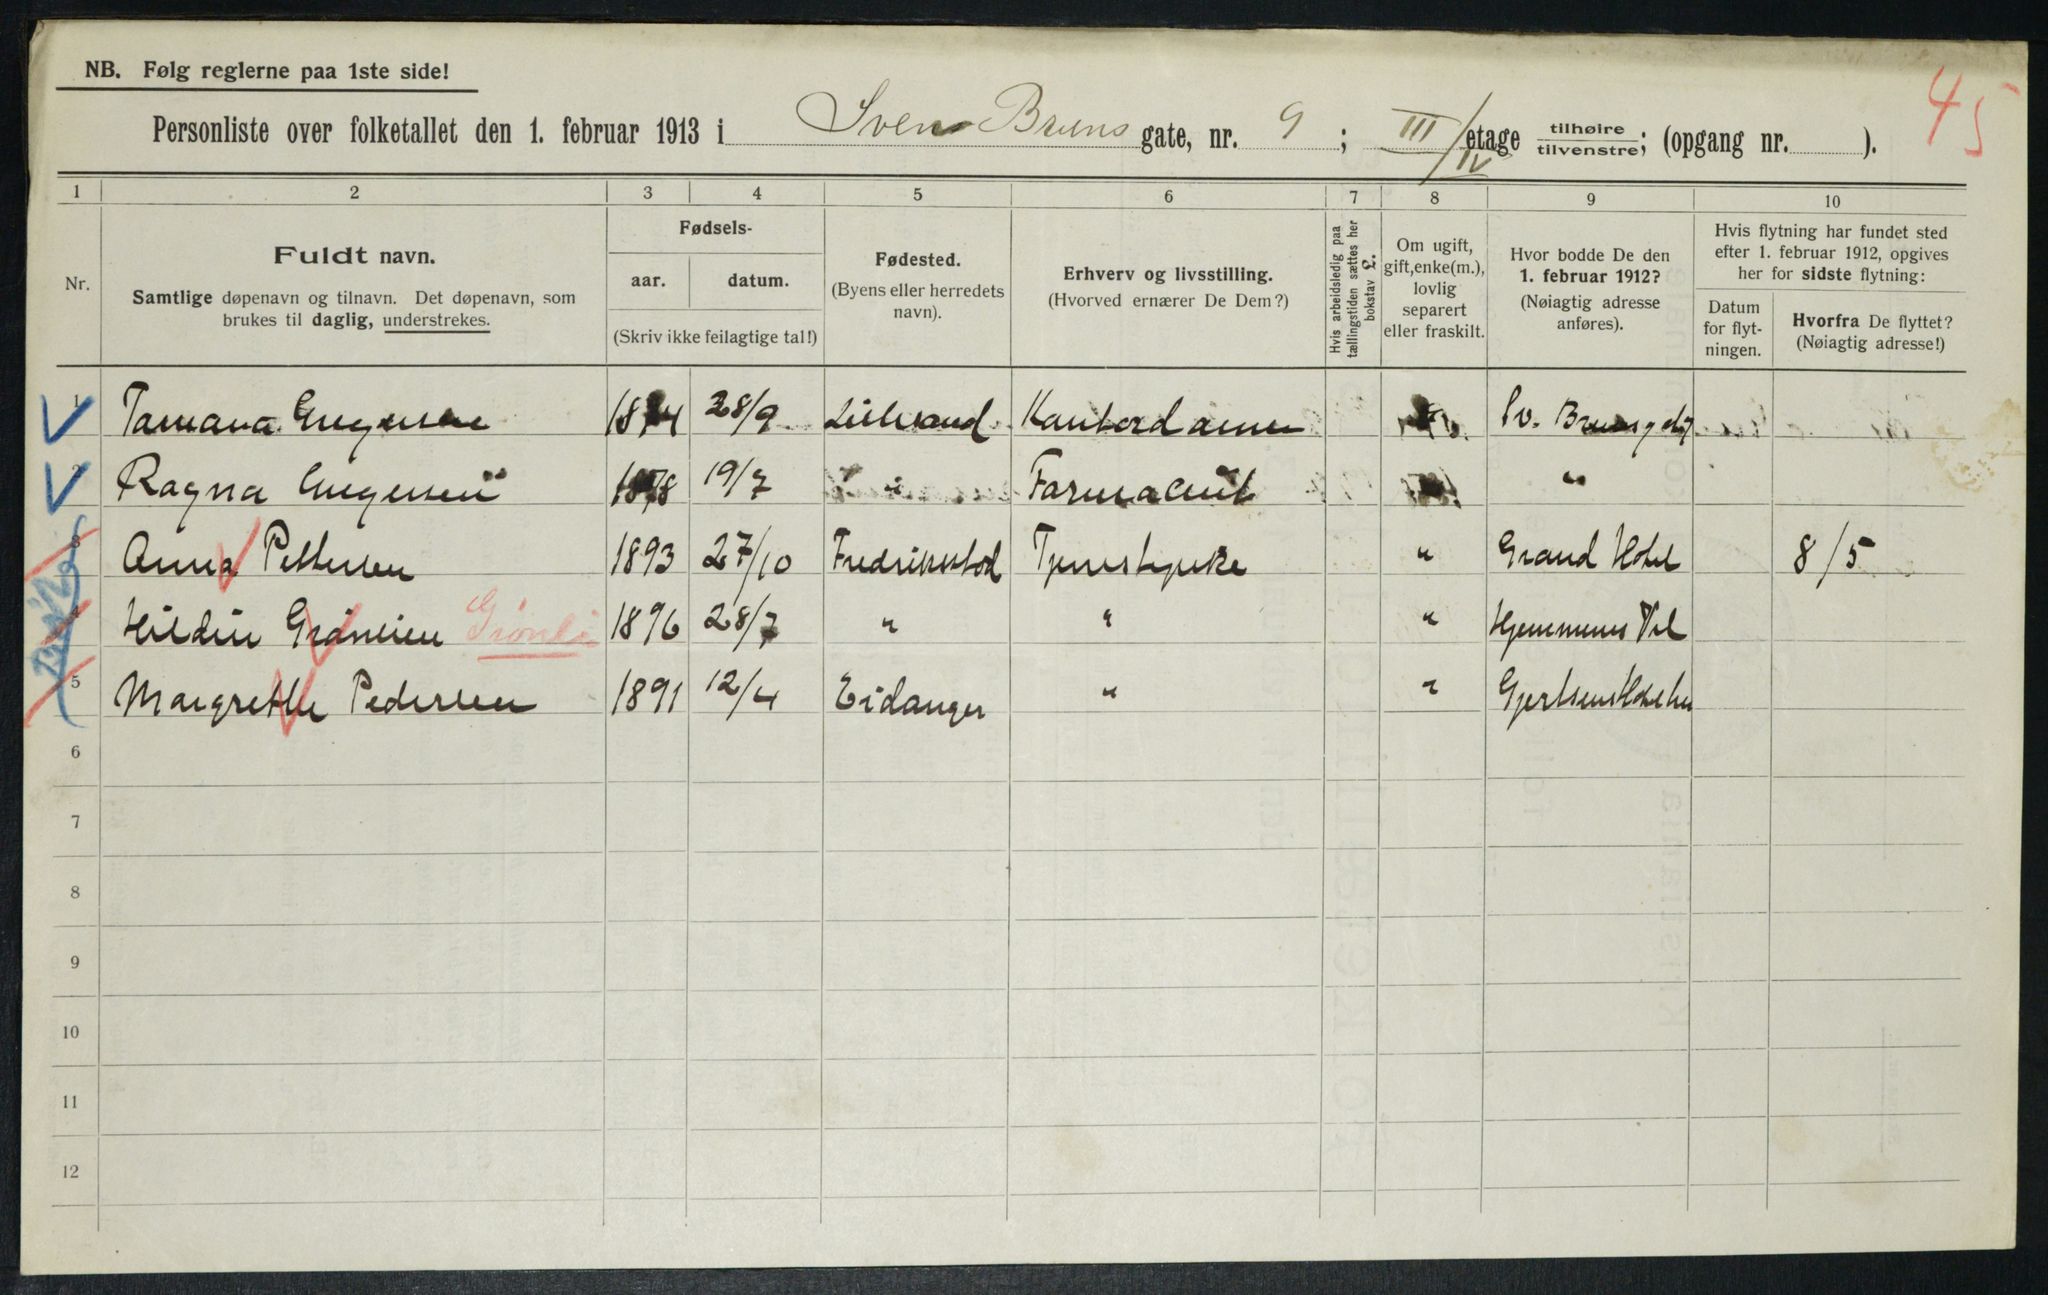 NB. Følg reglerne paa 1ste side!
45
Personliste over folketallet den 1. februar 1913 i Svend Bruns gate, nr. 9 ; III/IV etage tilhøire/tilvenstre; (opgang nr. ).
1 2 3 4 5 6 7 8 9 10
Nr.
Fuldt navn.
Samtlige døpenavn og tilnavn. Det døpenavn, som
brukes til daglig, understrekes.
Fødsels-
aar. datum.
(Skriv ikke feilagtige tal!)
Fødested.
(Byens eller herredets
navn).
Erhverv og livsstilling.
(Hvorved ernærer De Dem?)
Hvis arbeidsledig paa
tællingstiden sættes her
bokstav L.
Om ugift,
gift, enke(m.),
lovlig
separert
eller fraskilt.
Hvor bodde De den
1. februar 1912?
(Nøiagtig adresse
anføres).
Hvis flytning har fundet sted
efter 1. februar 1912, opgives
her for sidste flytning:
Datum
for flyt-
ningen.
Hvorfra De flyttet?
(Nøiagtig adresse!)
1 18 4 28/9 Kontordame Sv. Brunsgd 9
2 Ragna 1878 19/7 " Farmaceut "
3 Anna Pettersen 1893 27/10 Fredriksstad " Grand Hotel 8/5
4 Grønlien Grønli 1896 28/7 " " " Hjemmenes Vel
5 Margrethe Pedersen 1891 12/4 Eidanger " "
6
7
8
9
10
11
12